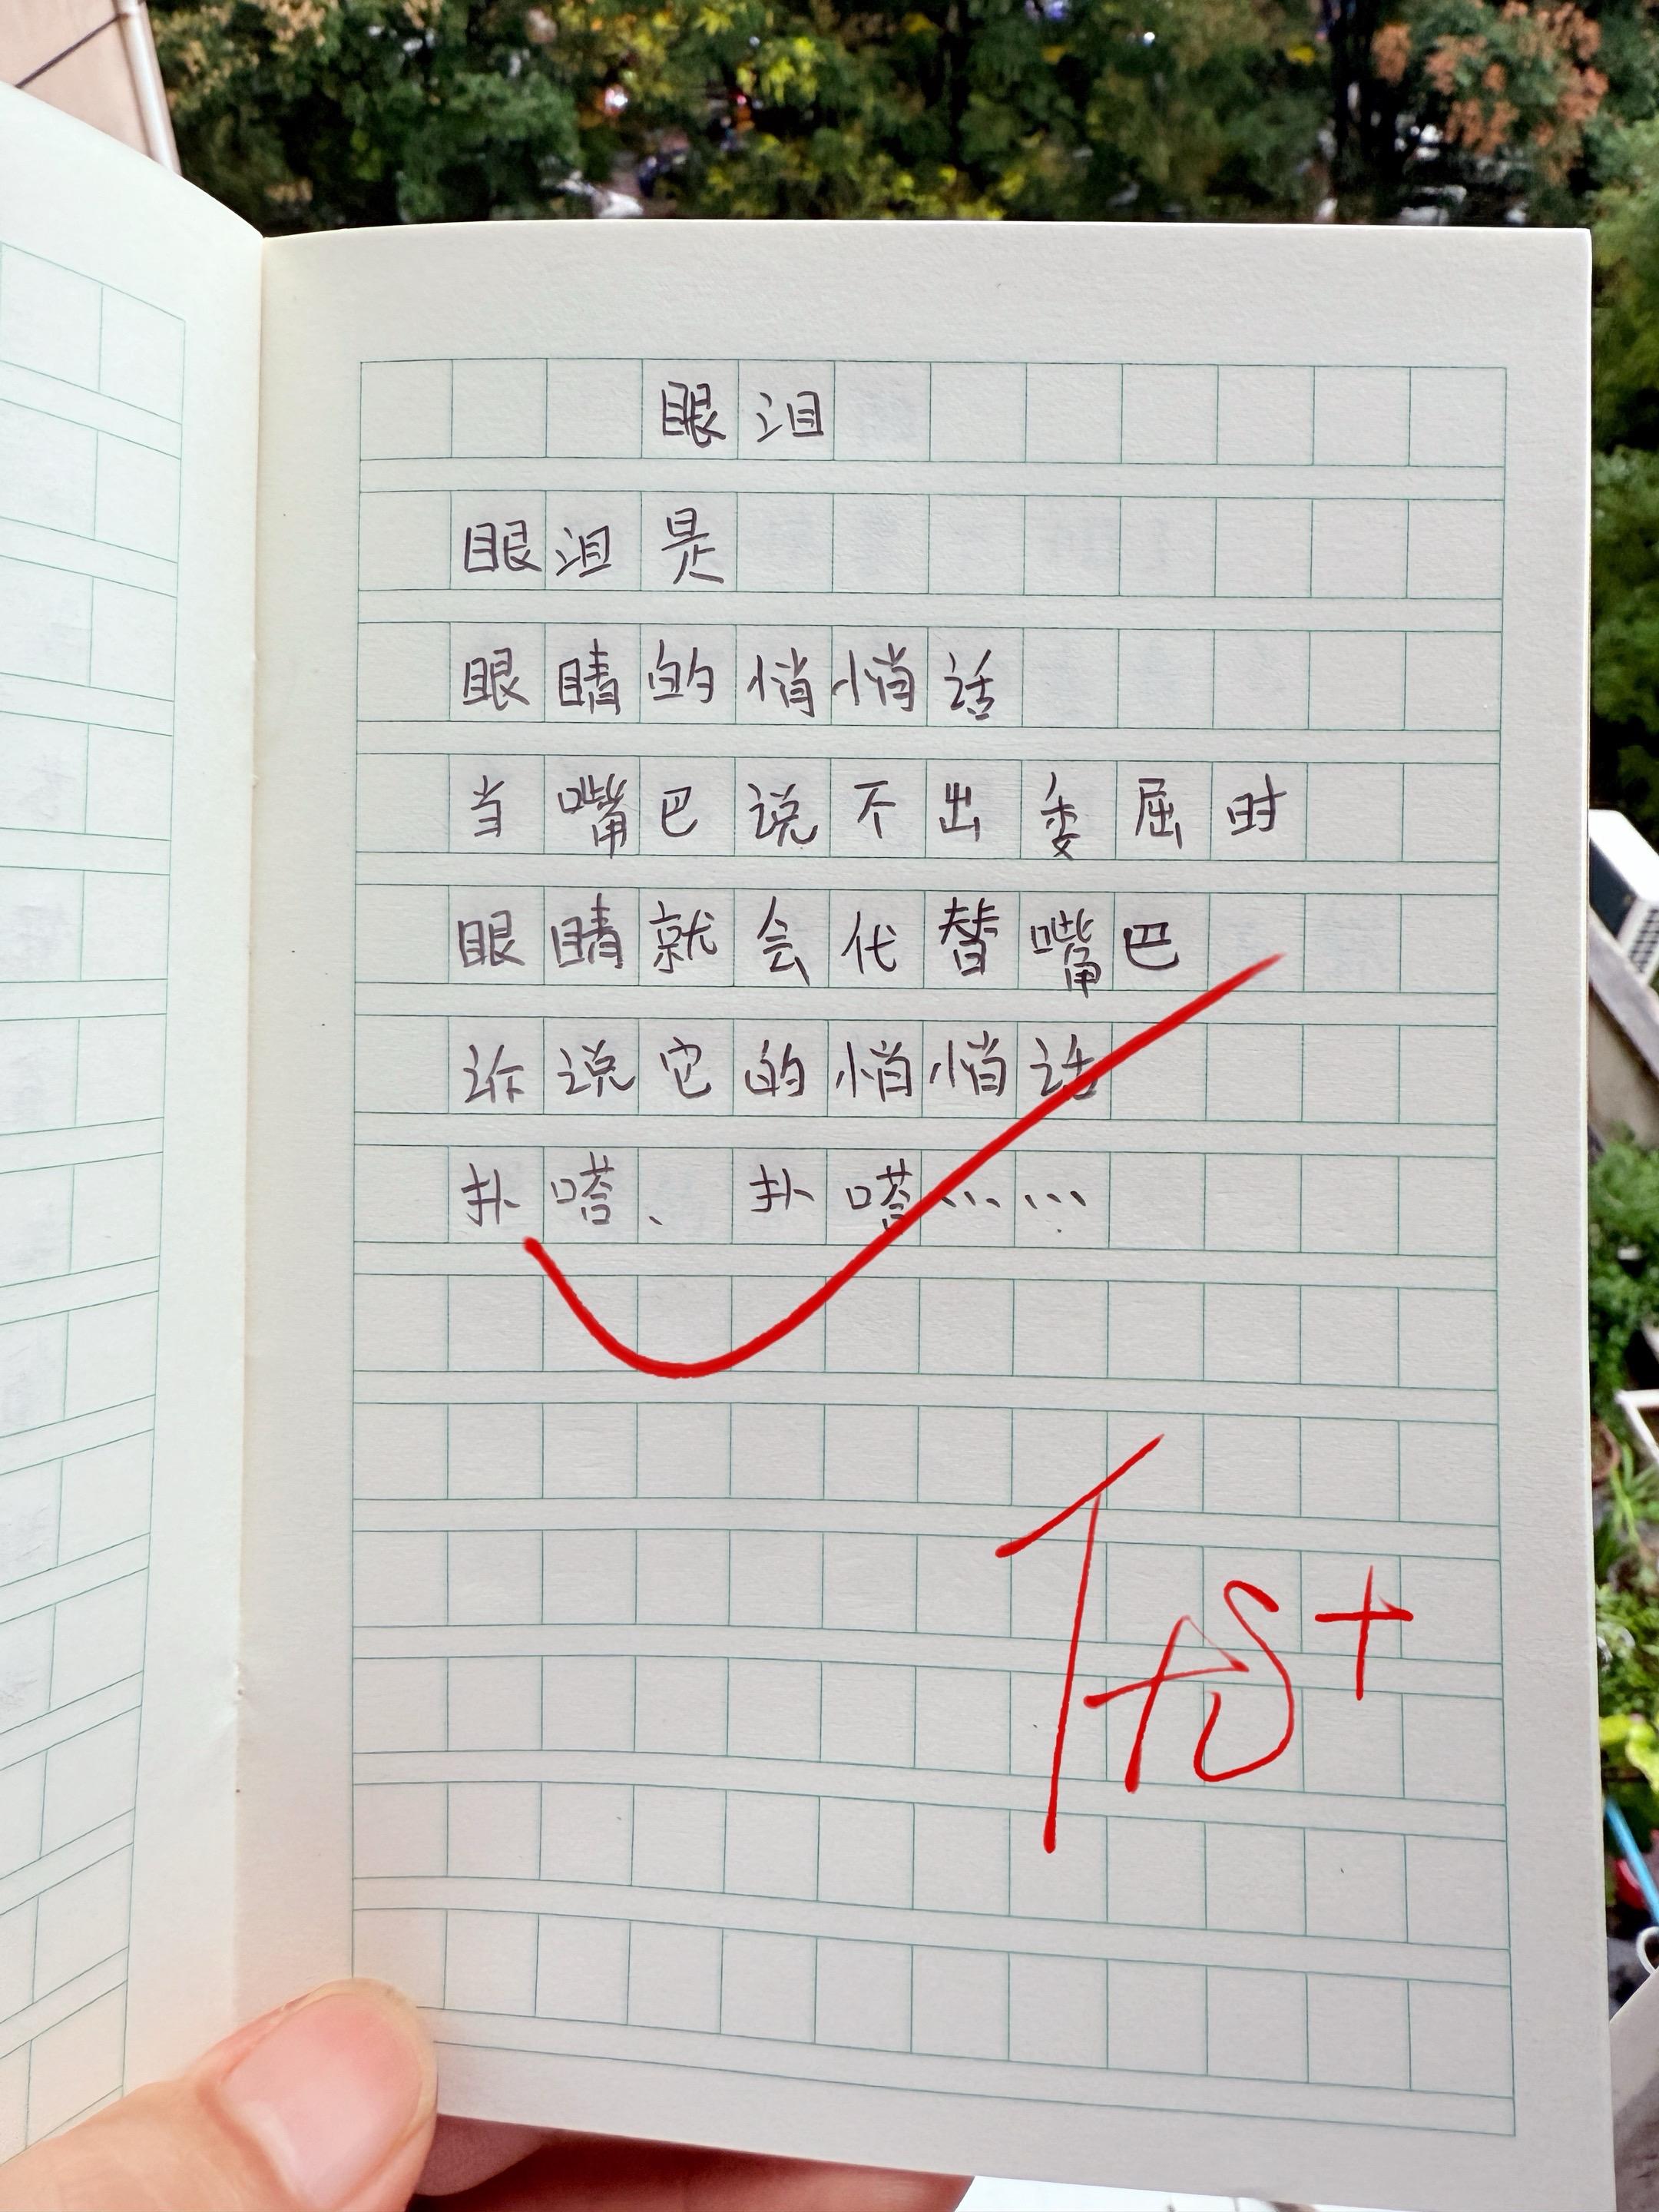 眼泪
眼泪是
眼睛的悄悄话
当嘴巴说不出委屈时
眼睛就会代替嘴巴
诉说它的悄悄话
扑嗒、扑嗒……